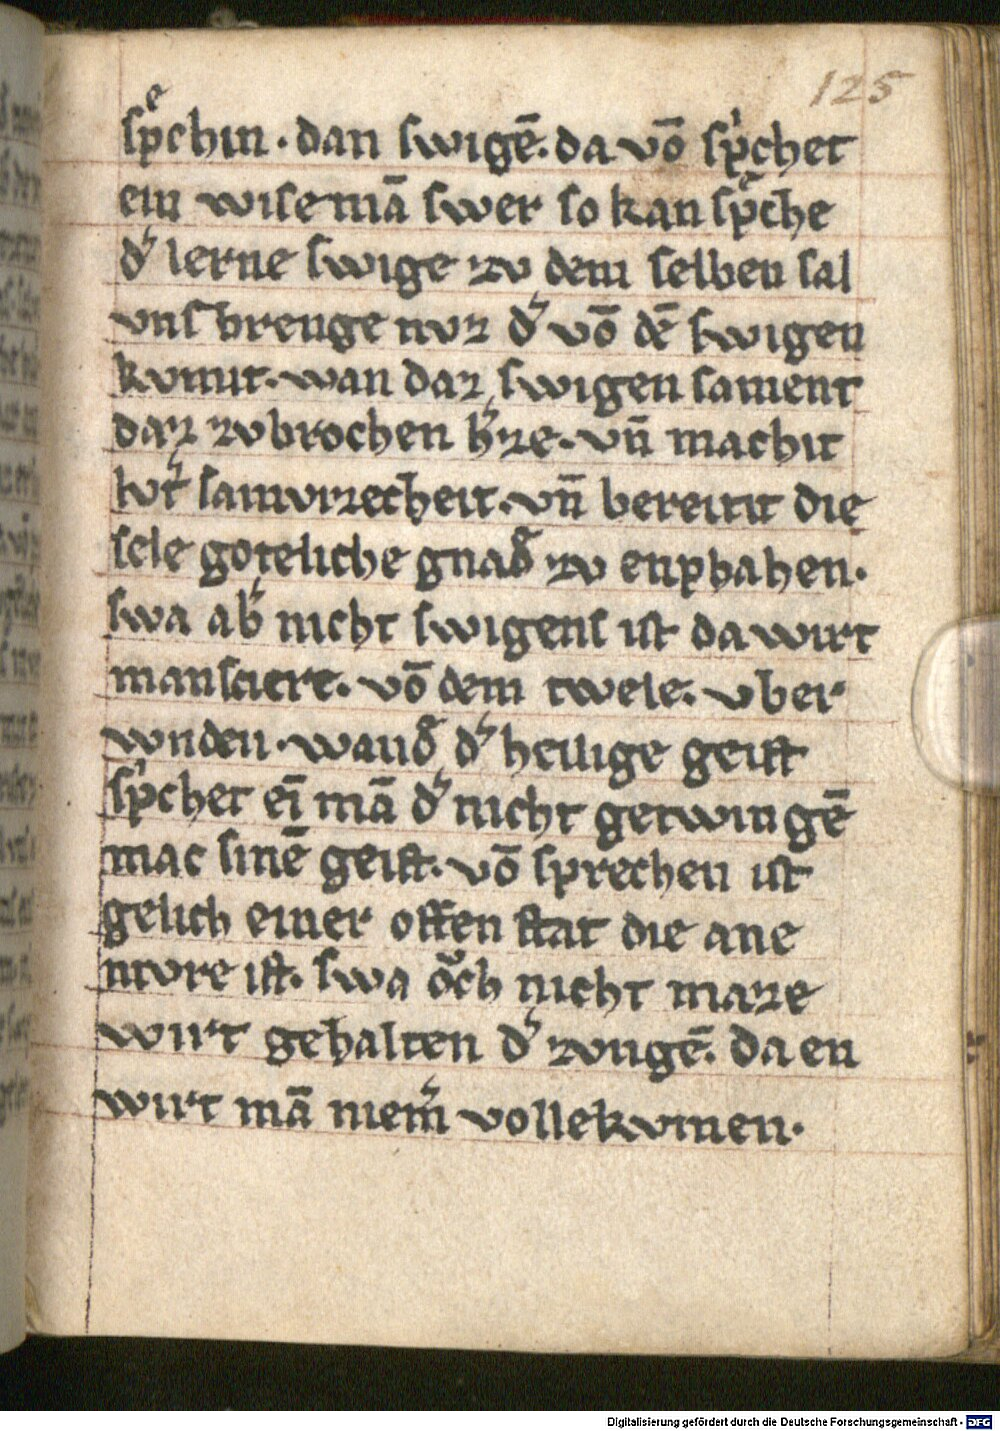 125
spͤchin · dan swigē · da vō sp͛chet
ein wise mā swer so kan spͤche
d͛ lerne swige zv dem selben sal
vns brenge nvz d͛ vō dē swigen
kvmit · wan daz swigen sament
daz zvbrochen h͛ze · vn̄ machit
samvizecheit · vn̄ bereitit die
sele goteliche gnad͛ zv enphahen ·
swa ab͛ nicht swigens ist da wirt
man sciere · vō dem twele · vber
wnden · wand͛ d͛ heilige geist
sp͛chet eī mā d͛ nicht getwingē
mac sinē geist · vō sprechen ist
gelich einer offen stat die ane
mvre ist · swa oͮch nicht maze
wirt gehalten d͛ zvngē · da en
wirt mā niem͛ vollekvmen ·
Digitalisierung gefördert durch die Deutsche Forschungsgemeinschaft - DFG